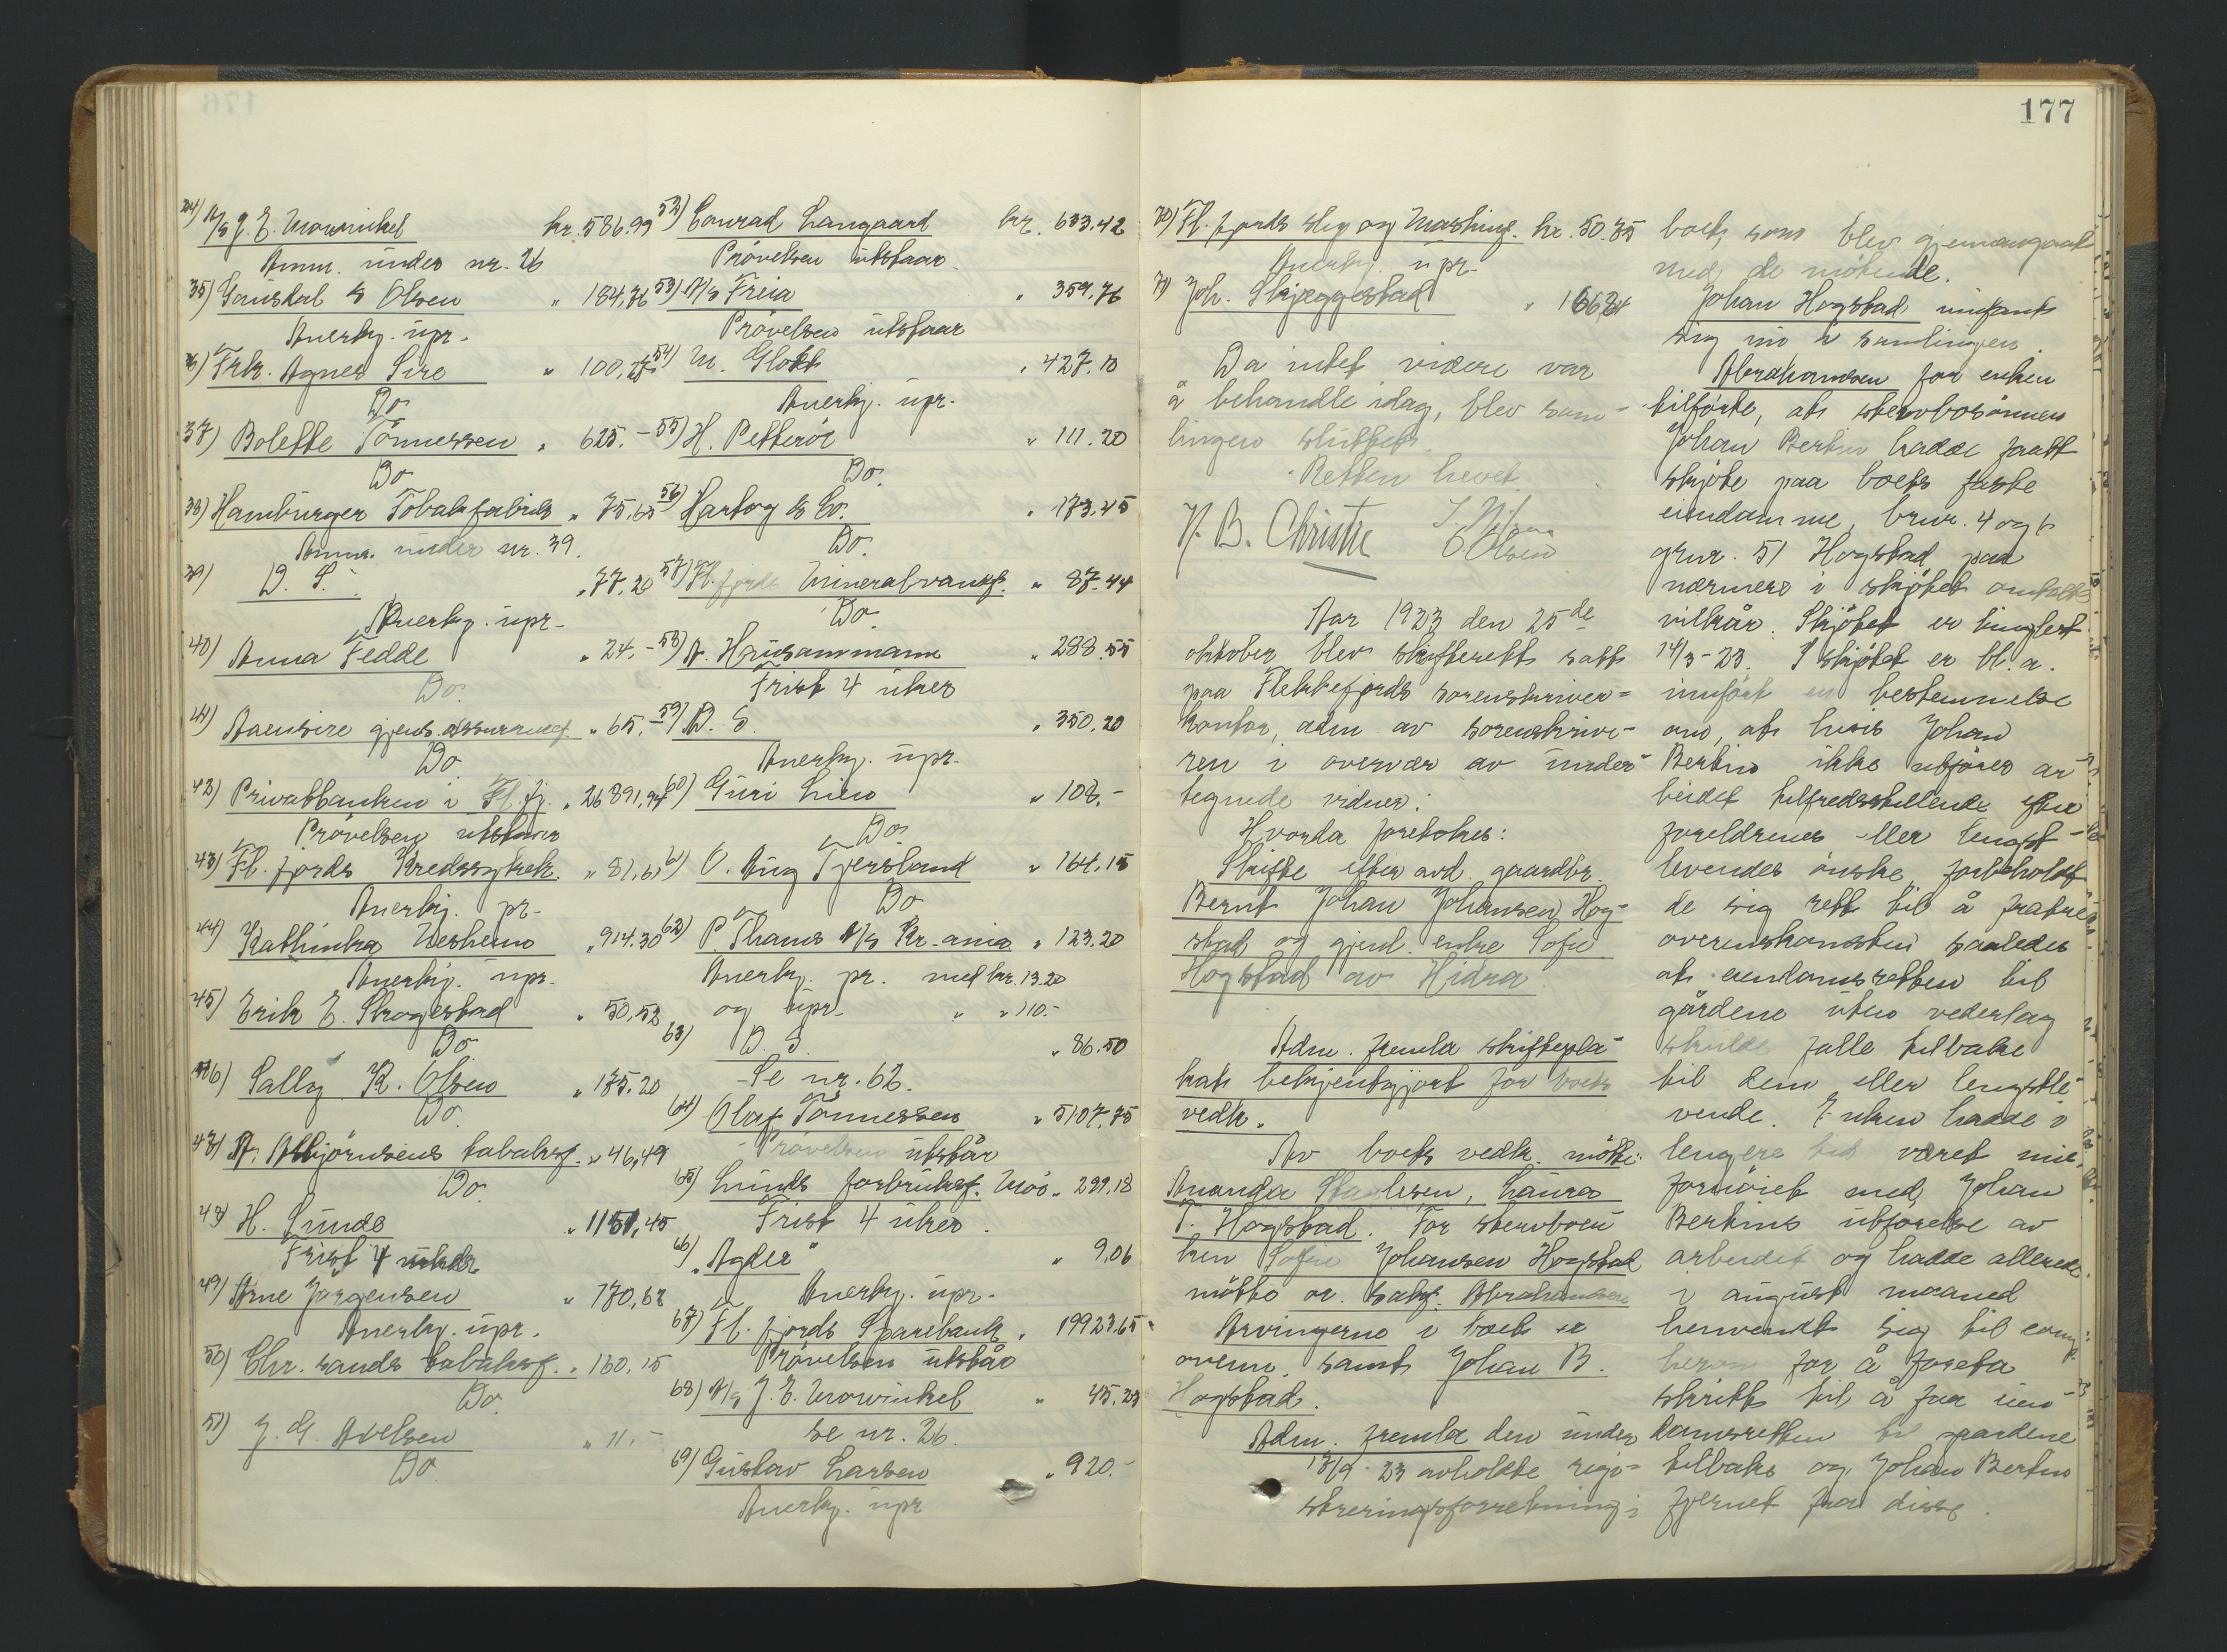 34) A/s J. E. Mowinckel kr. 586.99
Anm. under nr. 26
35) Gausdal & Olsen " 184,76
Anerkj. upr.
36) Frk. Agnes Sire " 100,25
Do
37) Bolette Tönnessen " 625.-
Do
38) Hamburger Tobakfabrik " 75,65
Anm. under nr. 39.
39) D. S. " 77,20
Anerkj. upr.
40) Anna Fedde " 24,-
Do.
41) Aaensire gjens. assurancef. " 65,-
Do
42) Privatbanken i Fl.fj. " 26891,94
Prövelsen utstaar
43) Fl.fjords Kredssykek. " 81,65
Anerkj. pr.
44) Kathinka Nesheim " 914.30
Anerkj. upr.
45) Erik E. Skogestad " 50,52
Do
46) Sally K. Olsen " 135.20
Do.
47) A. Asbjörnsens tobaksf. " 46,49
Do.
48) H. Lunde " 1151,45
Frist 4 uker
49) Arne Jörgensen " 170,62
Anerkj. upr.
50) Chr.sands tobaksf. " 160,15
Do.
51) J. G. Axelsen " 11.-
Do.
52) Conrad Langaard kr. 633.42
Prövelsen utstaar
53) A/s Freia " 359,76
Prövelsen utstaar
54) M. Glott " 427.10
Anerkj. upr.
55) H. Petteröe " 111.20
Do.
56) Hartog & Co. " 173.45
Do.
57) Fl.fjords Mineralvandf. " 87.44
Do.
58) A. Hausammann " 288.55
Frist 4 uker
59) D. S. " 350.20
Anerkj. upr.
60) Guri Lien " 108.-
Do.
61) O. Aug Tjersland " 164.15
Do
62) P. Thams A/s Kr.ania " 123.20
Anerkj. pr. med kr. 13.20
og upr. " " 110.-
63) D. S. " 86.50
Se nr. 62.
64) Olaf Tönnessen " 5107.75
Prövelsen utstår
65) Lunds forbruksf. Moi " 299.18
Frist 4 uker.
66) "Agder" " 9,06
Anerkj. upr.
67) Fl.fjords Sparebank " 19923.65
Prövelsen utstår
68) A/s J. E. Mowinckel " 45.23
se nr. 26.
69) Gustav Larsen " 920.-
Anerkj. upr
177
70) Fl.fjords slip og Maskinf. kr. 50.35
Anerkj. upr.
71) Joh. Skjeggestad "
Da intet videre var
å behandle idag, blev sam-
lingen sluttet.
Retten hevet.
N. B. Christie
O Olsen
Aar 1923 den 25de
oktober blev skifterett satt
paa Flekkefjords sorenskriver=
kontor, adm av sorenskrive-
ren i overvær av under-
tegnede vidner.
Hvorda foretokes:
Skifte efter avd. gaardbr.
Bernt Johan Johansen Hog-
stad og gjenl. enke Sofie
Hogstad av Hidra.
Adm. fremla skiftepla-
kat bekjentgjort for boets
vedk.
Av boets vedk. mötte:
Amanda Staalesen, Laura
T. Hogstad. For stervboen
ken Sofie Johansen Hogstad
mötte o.r. sakf. Abrahamsen
Arvingerne i boet er
ovenn. samt Johan B.
Hogstad.
Adm. fremla den under
13/9-23 avholdte regi-
streringsforretning i
boet, som blev gjennemgaat
med de mötende.
Johan Hogstad innfant
sig nu i samlingen.
Abrahamsen for enken
tilförte, at stervbosönnen
Johan Bertin hadde faatt
skjöte paa boets faste
eiendomme, brnr. 4 og 6
grnr. 51 Hogstad paa
nærmere i skjötet omtalte
vilkår. Skjötet er tinglest
14/3-23. I skjötet er bl. a.
innfört en bestemmelse
om, at hvis Johan
Bertin ikke utförer ar-
beidet tilfredsstillende efter
foreldrenes eller lengst-
levendes önske, forbeholdt
de sig rett til å fratre
overenskomsten saaledes
at eiendomsretten til
gårdene uten vederlag
skulde falle tilbake
til dem eller lengstle-
vende. Enken hadde i
lengere tid været mis-
fornöiet med Johan
Bertins utförelse av
arbeidet og hadde allerede
i august maaned
henvendt sig til comp.
herom for å foreta
skritt til å faa eien-
domsretten til gaardene
tilbake og Johan Bertin
fjernet fra disse.